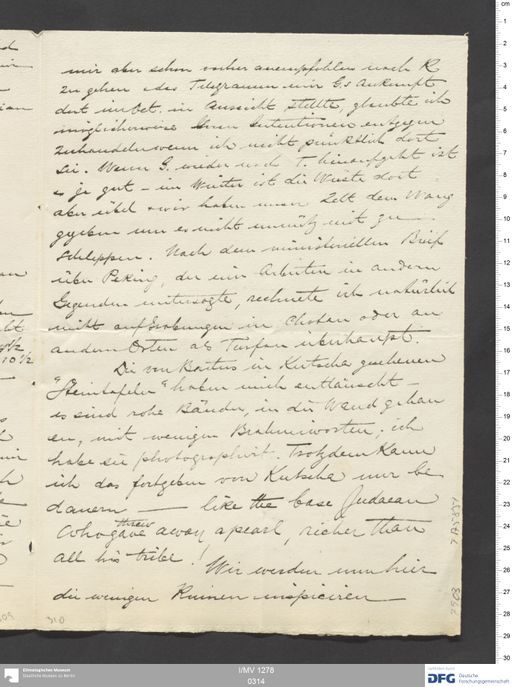 mir aber schon vorher anempfohlen nach K
zu gehen & das Telegramm mir G.s Ankunft
dort unbet. in Aussicht stellte, glaubte ich
möglicherweise Ihren Intentionen entgegen
zuhandeln wenn ich nicht pünktlich dort
sei. Wenn G. wieder nach T. hinaufgeht ist
es ja gut – im Winter ist die Wüste dort
aber übel & wir haben unser Zelt dem Wang
gegeben um es nicht unnütz mit zu
schleppen. Nach dem ministeriellen Brief
über Peking, der mir Arbeiten in andern
Gegenden untersagte, rechnete ich natürlich
nicht auf Grabungen in Chotan oder an
andern Orten als Turfan überhaupt.
Die von Bartus in Kutscha gesehenen
"Steintafeln" haben mich enttäuscht –
es sind rohe Bänder, in die Wand gehau
en, mit wenigen Brahmiworten. ich
habe sie photographirt. Trotzdem kann
ich das fortgehen von Kutscha nur be
dauern — like the base Judaean
who gave threw away a pearl, richer than
all his tribe!
Wir werden nun hier
die wenigen Ruinen inspiciren —
10 1/2
310
I/MV 1278
0314
Ethnologisches Museum
Staatliche Museen zu Berlin
DFG
Deutsche
Forschungsgemeinschaft
cm
1
2
3
4
5
6
7
8
9
10
11
12
13
14
15
16
17
18
19
20
21
22
23
24
25
26
27
28
29
30